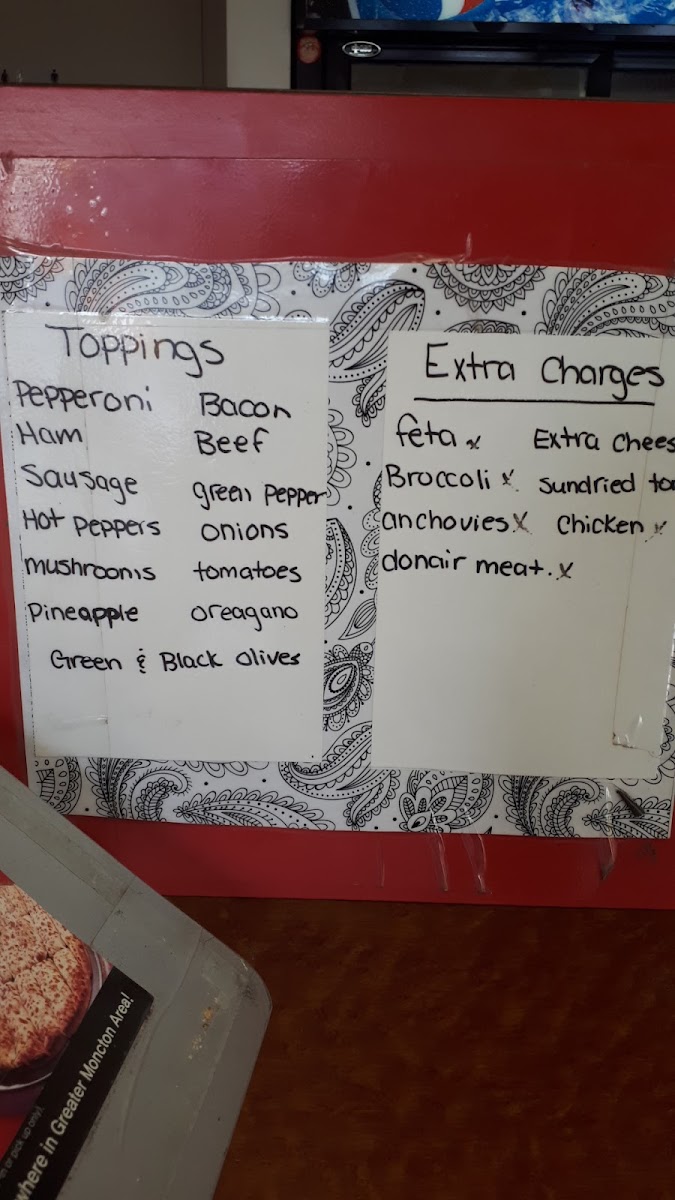 Toppings
Pepperoni Bacon
Ham Beef
Sausage green Pepper
Hot Peppers onions
mushrooms tomatoes
Pineapple oreagano
Green & Black olives
Extra Charges
feta x Extra Chees
Broccoli x sundried to
anchovies x Chicken x
donair meat. x
where in Greater Moncton Area!
or pick up only).